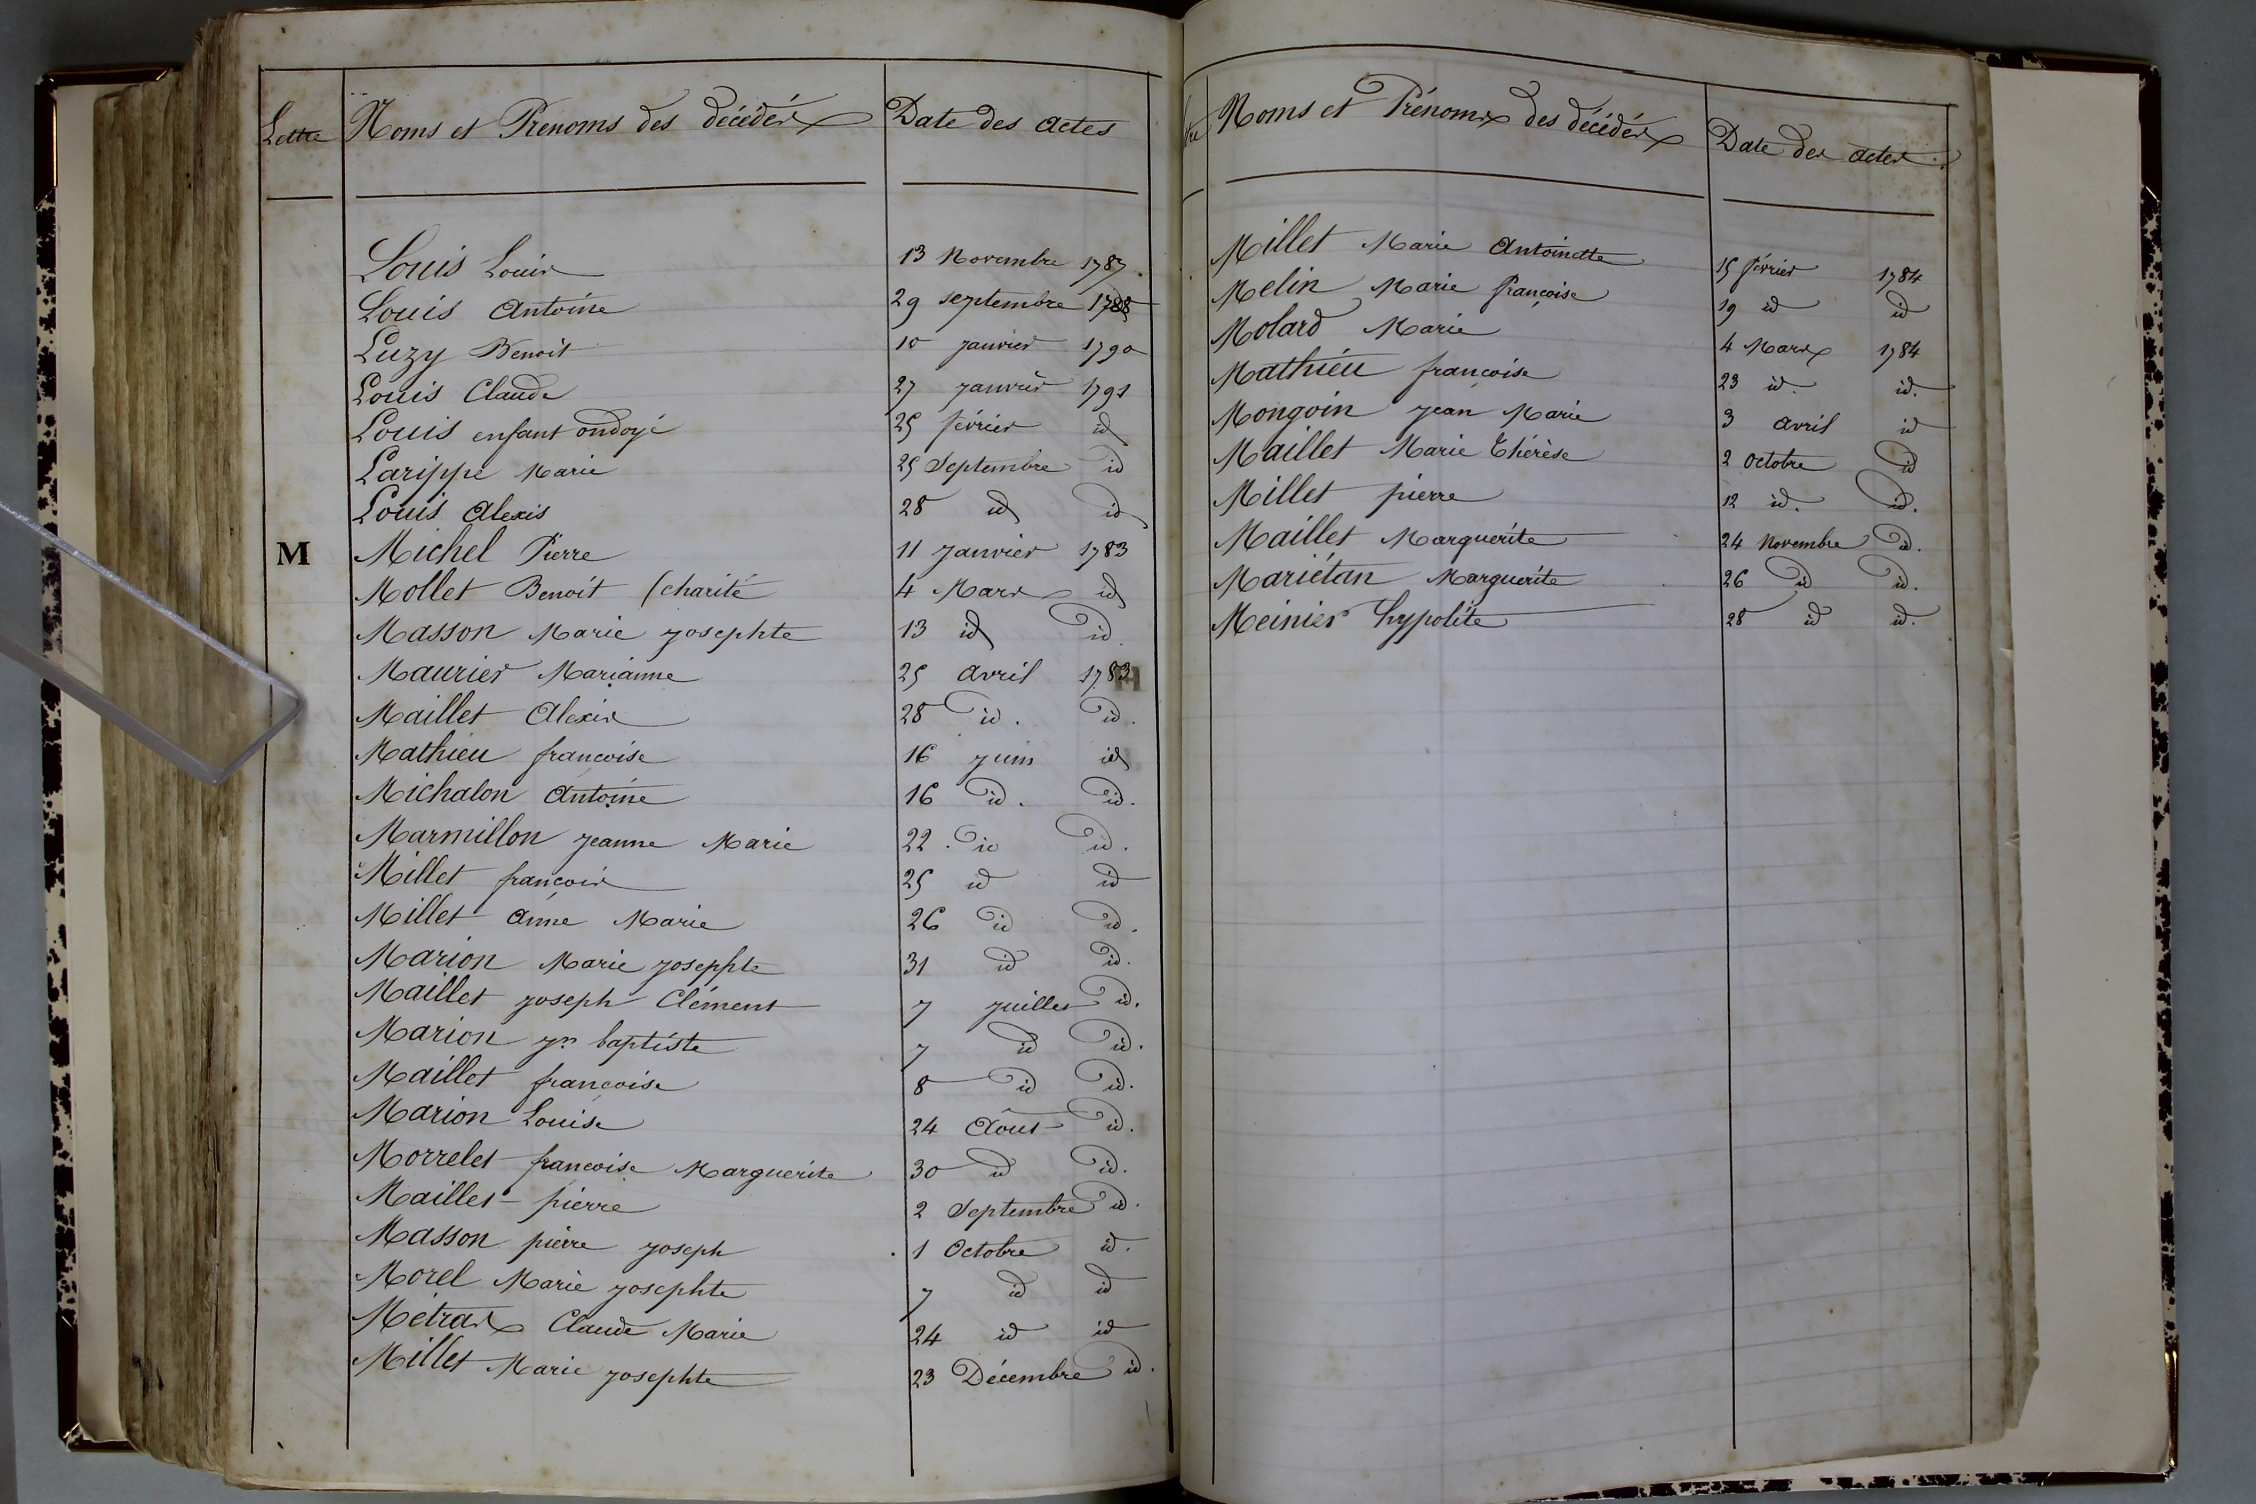 Lettre Noms et Prenoms des décédés Date des actes
Louis Louis 13 Novembre 1787.
Louis Antoine 29 septembre 1788
Luzy Benoit 10 janvier 1790
Louis Claude 27 janvier 1791
Louis enfant ondoyé 25 février id
Larippe Marie 25 Septembre id
Louis Alexis 28 id id
M Michel Pierre 11 janvier 1783
Mollet Benoit (charité 4 Mars id
Masson Marie josephte 13 id id.
Maurier Marianne 25 avril 1783
Maillet Alexis 28 id. id.
Mathieu françoise 16 juin id
Michalon Antoine 16 id. id.
Marmillon jeanne Marie 22. id id.
Millet françois 25 id id
Millet Anne Marie 26 id id.
Marion Marie josephte 31 id id.
Maillet joseph Clément 7 juillet id.
Marion jn baptiste 7 id id.
Maillet françoise 8 id id.
Marion Louise 24 Août id.
Morrelet françoise Marguerite 30 id id.
Maillet pierre 2 Septembre id.
Masson pierre joseph 1 Octobre id.
Morel Marie josephte 7 id id
Métras Claude Marie 24 id id
Millet Marie josephte 23 Décembre id.
Noms et Prénoms des décédés Date des actes.
Millet Marie Antoinette 15 février 1784
Melin Marie françoise 19 id id
Molard Marie 4 Mars 1784
Mathieu françoise 23 id. id.
Mongoin jean Marie 3 avril id
Maillet Marie Thérèse 2 Octobre id
Millet pierre 12 id. id.
Maillet Marguerite 24 Novembre id.
Mariétan Marguerite 26 id id.
Meinier hypolite 28 id id.